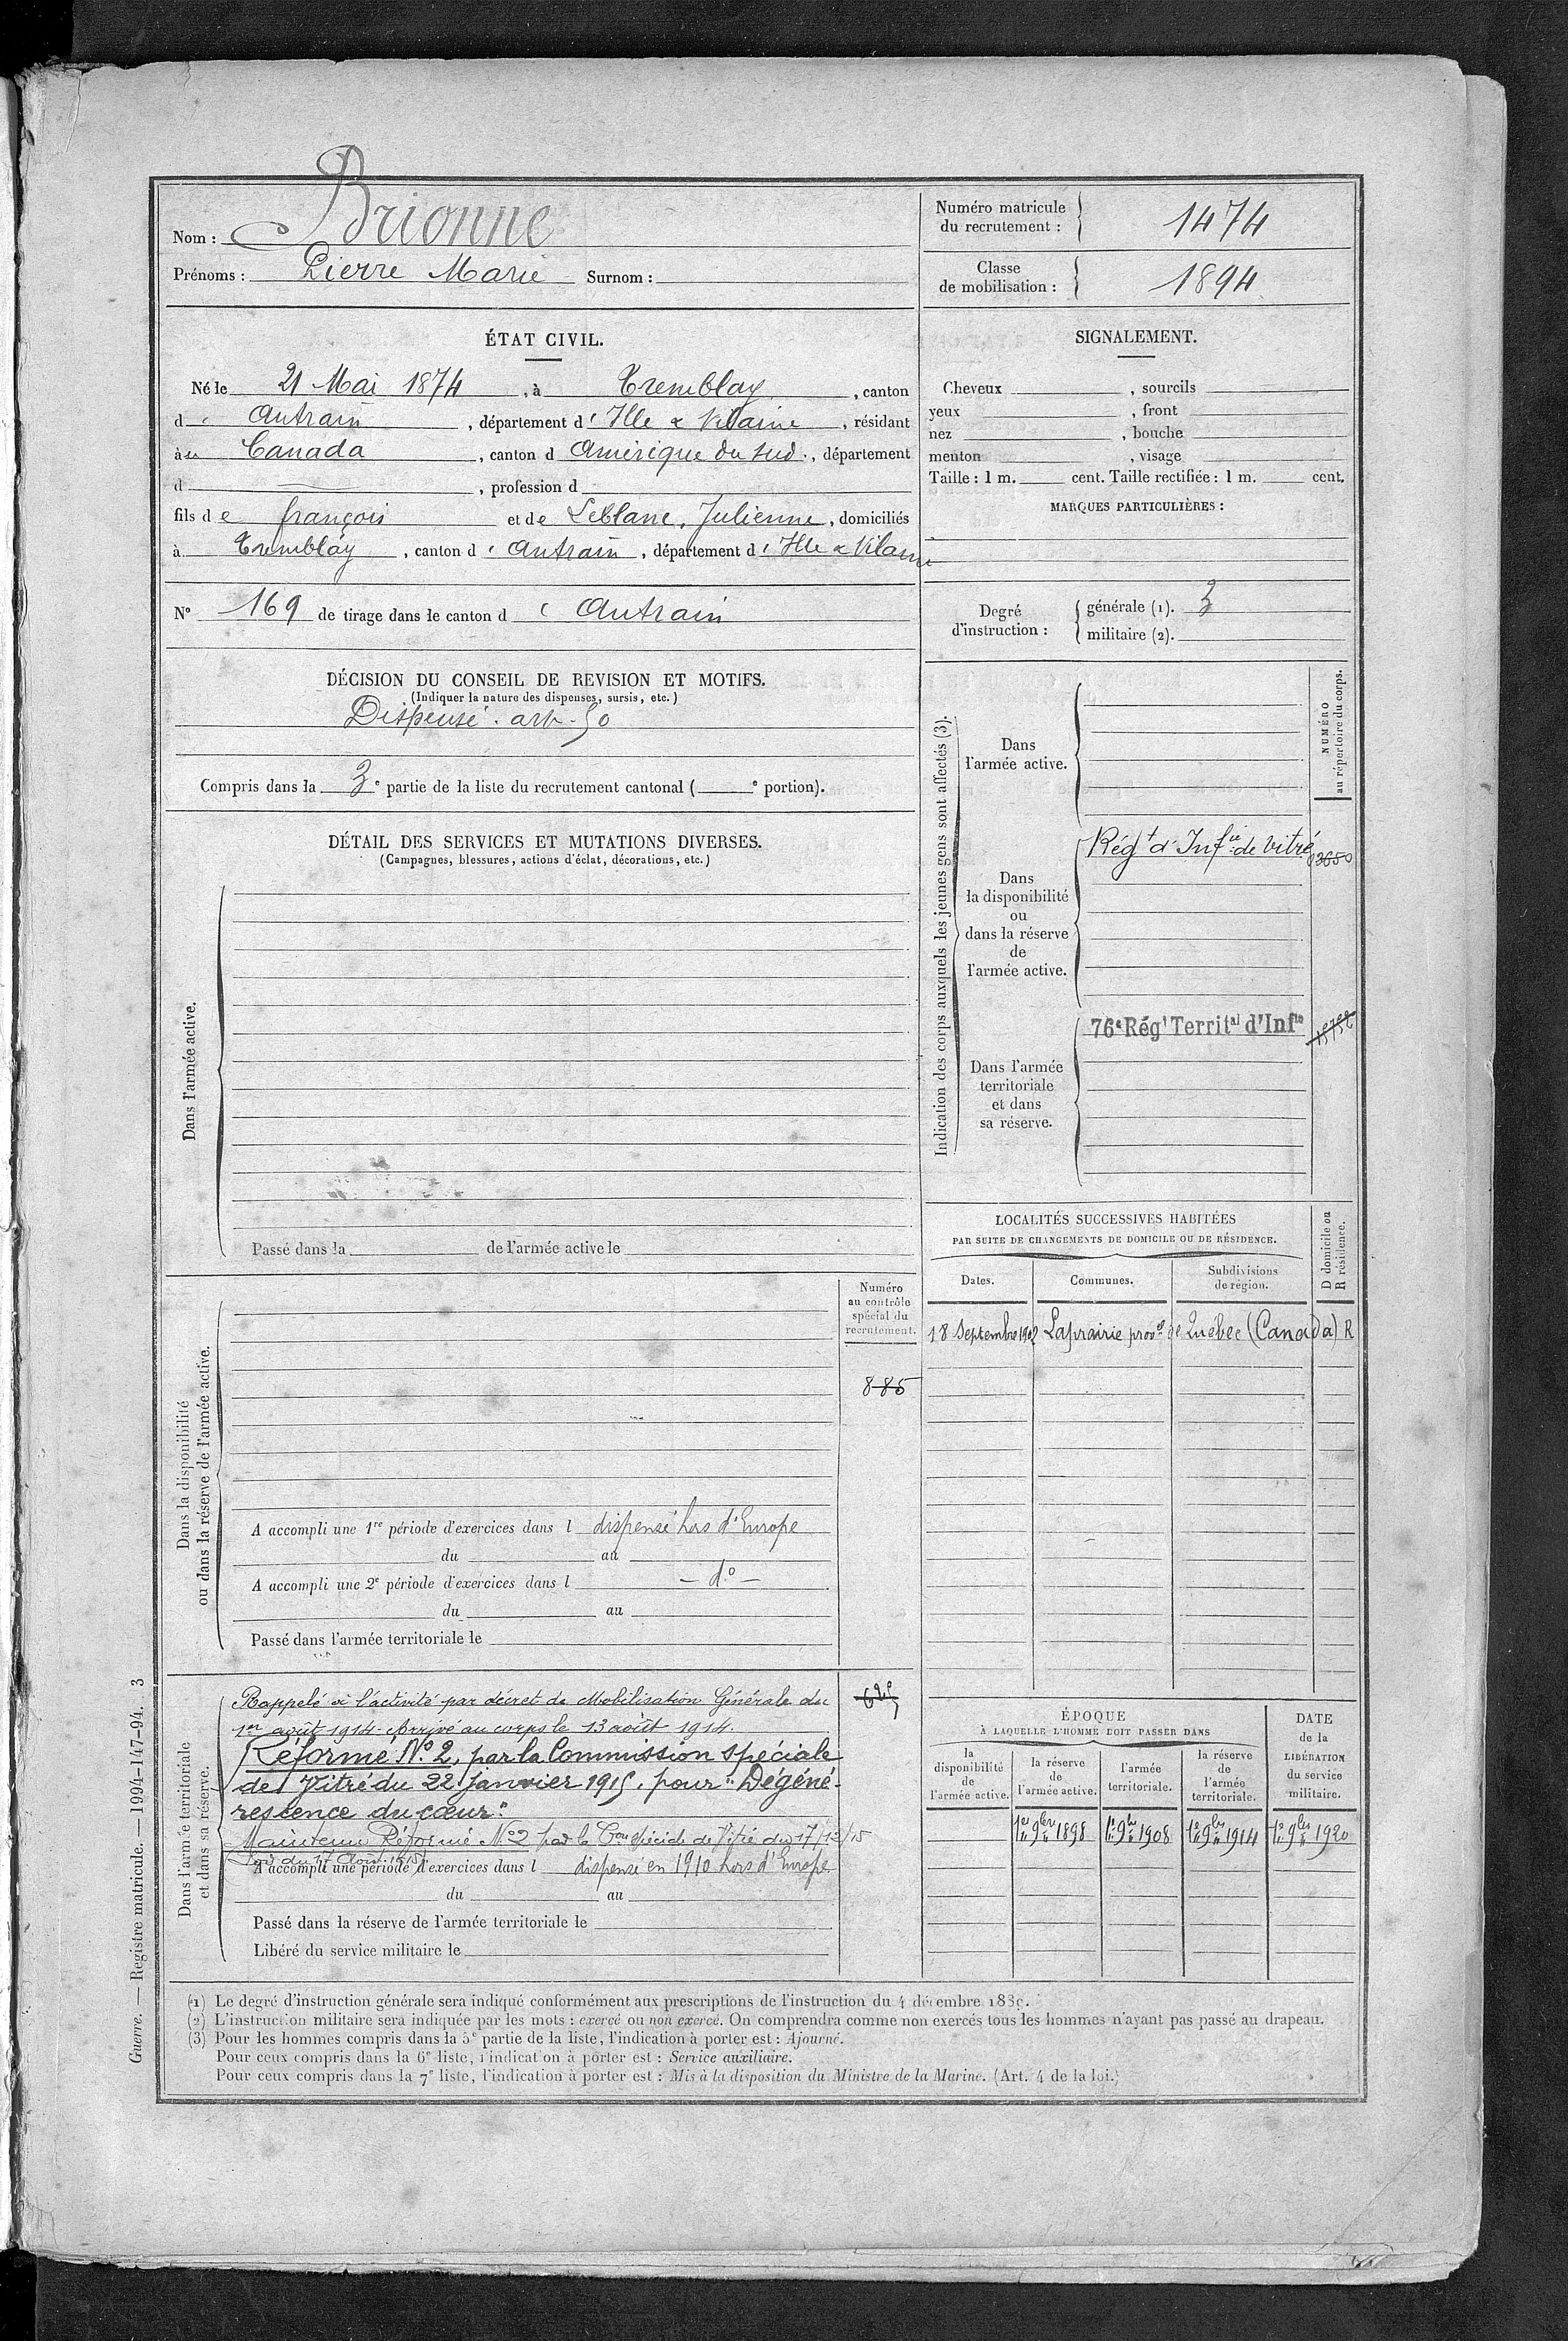 Nom : Brionne
Prénoms : Pierre Marie Surnom :
Numéro matricule du recrutement : 1474
Classe de mobilisation : 1894
ÉTAT CIVIL.
Né le 21 Mai 1874, à Tremblay, canton
d' Antrain, département d' Ille & Vilaine, résidant
à au Canada, canton d Amérique du Sud., département
d , profession d
fils de françois et de Leblanc, Julienne, domiciliés
à Tremblay, canton d' Antrain, département d' Ille & Vilaine
N° 169 de tirage dans le canton d' Antrain
DÉCISION DU CONSEIL DE REVISION ET MOTIFS.
(Indiquer la nature des dispenses, sursis, etc.)
Dispensé. art. 50
Compris dans la 3e partie de la liste du recrutement cantonal ( e portion).
DÉTAIL DES SERVICES ET MUTATIONS DIVERSES.
(Campagnes, blessures, actions d'éclat, décorations, etc.)
Dans l'armée active.
Passé dans la de l'armée active le
Dans la disponibilité
ou dans la réserve de l'armée active.
Numéro
au contrôle
spécial du
recrutement.
885
A accompli une 1re période d'exercices dans l dispensé hors d'Europe
du au
A accompli une 2e période d'exercices dans l – do –
du au
Passé dans l'armée territoriale le
Dans l'armée territoriale
et dans sa réserve.
Rappelé à l'activité par décret de Mobilisation Générale du
1er août 1914. Arrivé au corps le 13 août 1914.
Réformé N° 2, par la Commission spéciale
de Vitré du 22 janvier 1915, pour "Dégéné-
rescence du cœur"
Maintenu Réformé N°2 par la Con spéciale de Vitré du 17/12/15
(Loi du 17 Août 1915)
A accompli une période d'exercices dans l dispensé en 1910 hors d'Europe
du au
Passé dans la réserve de l'armée territoriale le
Libéré du service militaire le
SIGNALEMENT.
Cheveux , sourcils
yeux , front
nez , bouche
menton , visage
Taille : 1 m. cent. Taille rectifiée : 1 m. cent.
MARQUES PARTICULIÈRES :
Degré d'instruction :
générale (1). 3
militaire (2).
Indication des corps auxquels les jeunes gens sont affectés (3).
NUMÉRO
au répertoire du corps.
Dans
l'armée active.
Dans
la disponibilité
ou
dans la réserve
de
l'armée active.
Régt d'Infie de Vitré
Dans l'armée
territoriale
et dans
sa réserve.
76e Régt Territal d'Infie
LOCALITÉS SUCCESSIVES HABITÉES
PAR SUITE DE CHANGEMENTS DE DOMICILE OU DE RÉSIDENCE.
Dates. Communes. Subdivisions de région. D domicile ou R résidence.
18 Septembre 1902 Laprairie provce de Québec (Canada) R
ÉPOQUE
À LAQUELLE L'HOMME DOIT PASSER DANS
la disponibilité de l'armée active.
la réserve de l'armée active.
l'armée territoriale.
la réserve de l'armée territoriale.
DATE de la LIBÉRATION du service militaire.
1er 9bre 1898 1er 9bre 1908 1er 9bre 1914 1er 9bre 1920
(1) Le degré d'instruction générale sera indiqué conformément aux prescriptions de l'instruction du 4 décembre 1889.
(2) L'instruction militaire sera indiquée par les mots : exercé ou non exercé. On comprendra comme non exercés tous les hommes n'ayant pas passé au drapeau.
(3) Pour les hommes compris dans la 5e partie de la liste, l'indication à porter est : Ajourné.
Pour ceux compris dans la 6e liste, l'indication à porter est : Service auxiliaire.
Pour ceux compris dans la 7e liste, l'indication à porter est : Mis à la disposition du Ministre de la Marine. (Art. 4 de la loi.)
Guerre. — Registre matricule. — 1994-147-94. 3